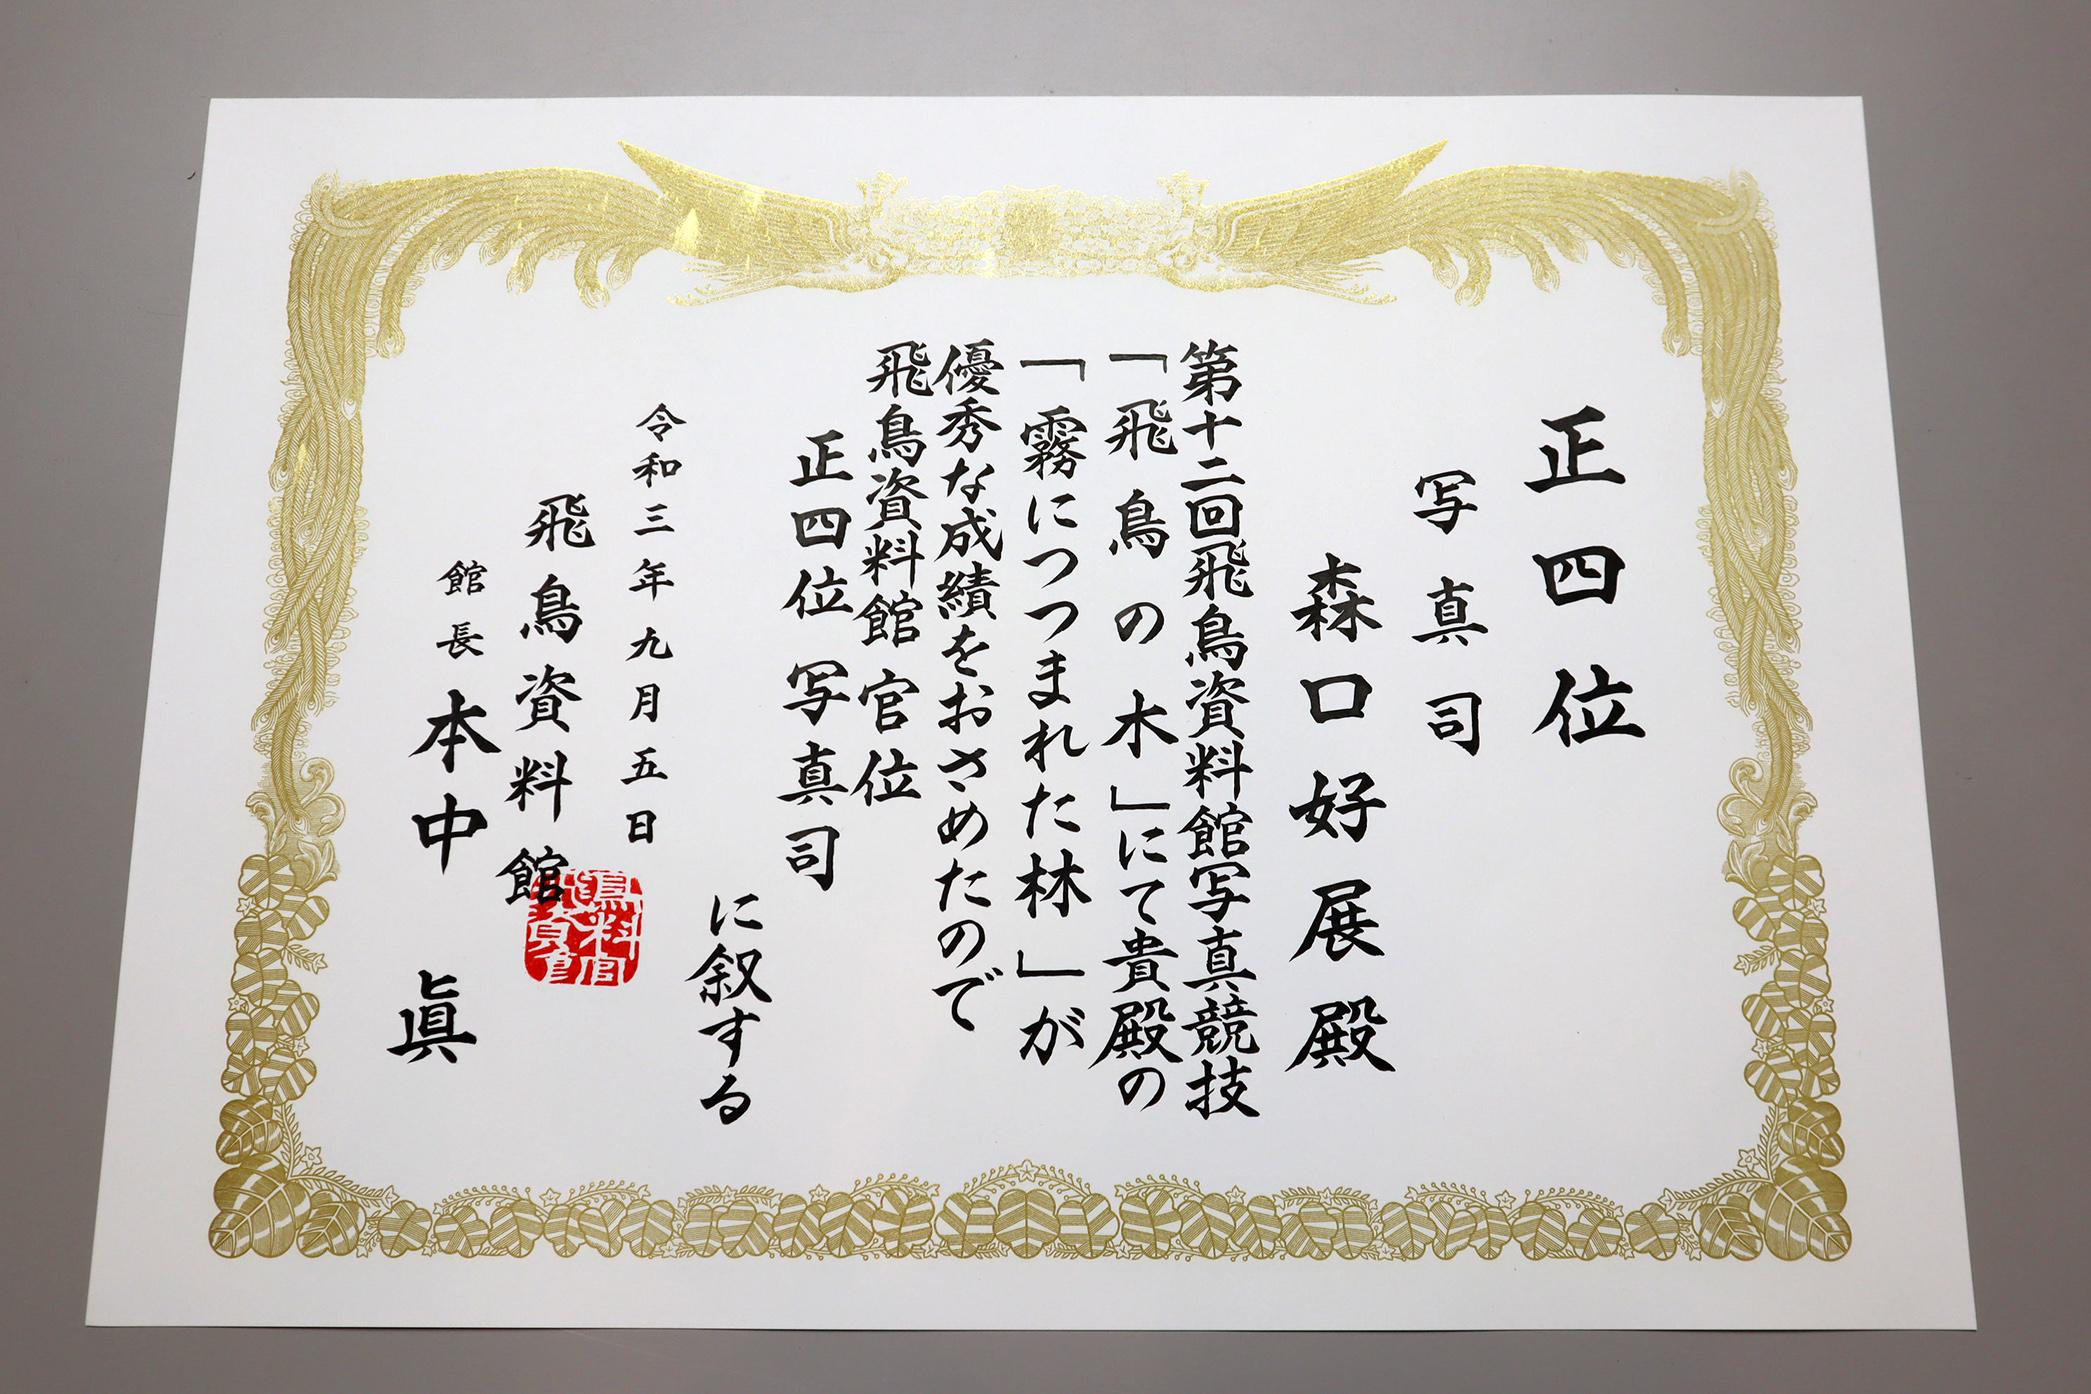 正四位
写真司
森口好展殿
第十二回飛鳥資料館写真競技
「飛鳥の木」にて貴殿の
「霧につつまれた林」が
優秀な成績をおさめたので
飛鳥資料館官位
正四位写真司
に叙する
令和三年九月五日
飛鳥資料館
館長本中眞